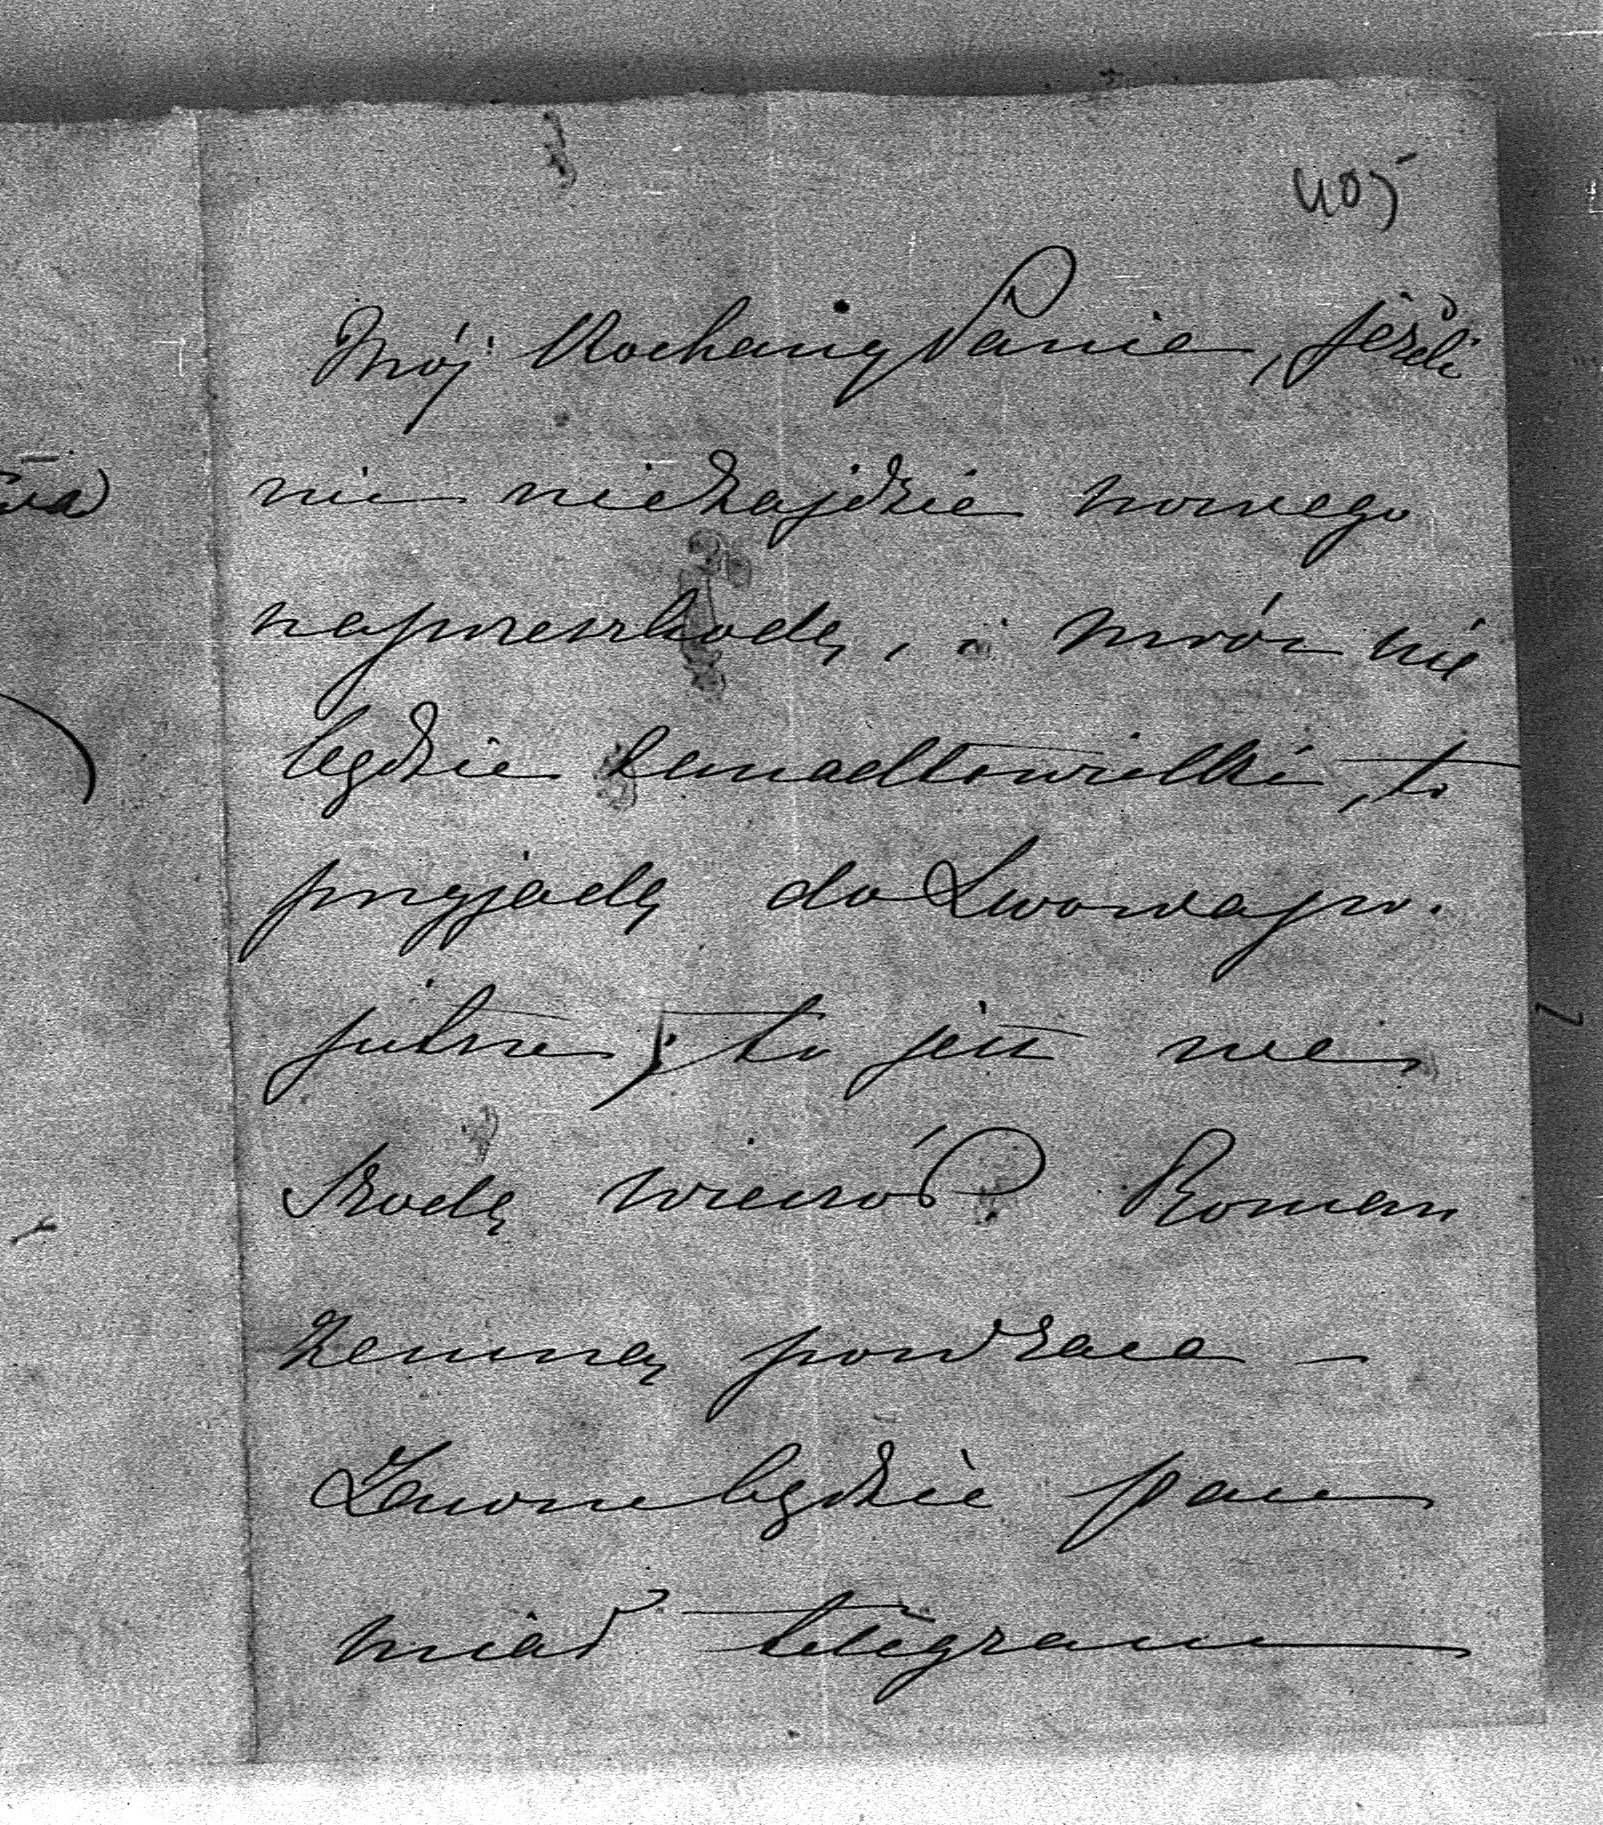 405
Mój Kochany Panie, jeżeli
nic niezajdzie nowego
naprzeszkodę, i mróz nie
będzie zanadtowielki, to
przyjadę do Lwowa po-
jutrze, to jest we
Srodę wieczór Roman
zemną powraca —
Zawsze będzie pan
miał telegram